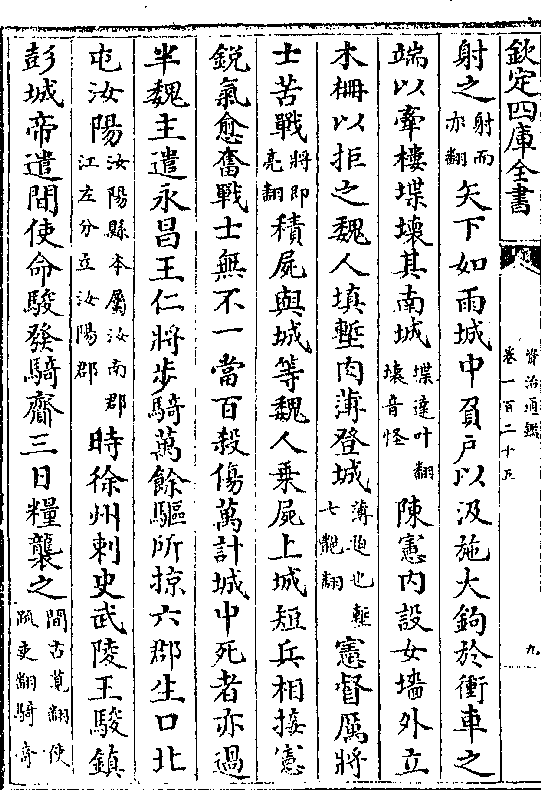 欽定四庫全書
資治通鑑
卷一百二十五
九
射之射而亦翻矢下如雨城中負户以汲施大鉤於衝車之
端以牽樓堞壞其南城堞達叶翻壞音怪陳憲内設女墻外立
木柵以拒之魏人填塹肉薄登城薄迫也塹七豔翻憲督厲將
士苦戰將即亮翻積屍與城等魏人乗屍上城短兵相接憲
鋭氣愈奮戰士無不一當百殺傷萬計城中死者亦過
半魏主遣永昌王仁將步騎萬餘驅所掠六郡生口北
屯汝陽汝陽縣本屬汝南郡江左分立汝陽郡時徐州刺史武陵王駿鎮
彭城帝遣間使命駿發騎齎三日糧襲之間古莧翻使疏吏翻騎奇